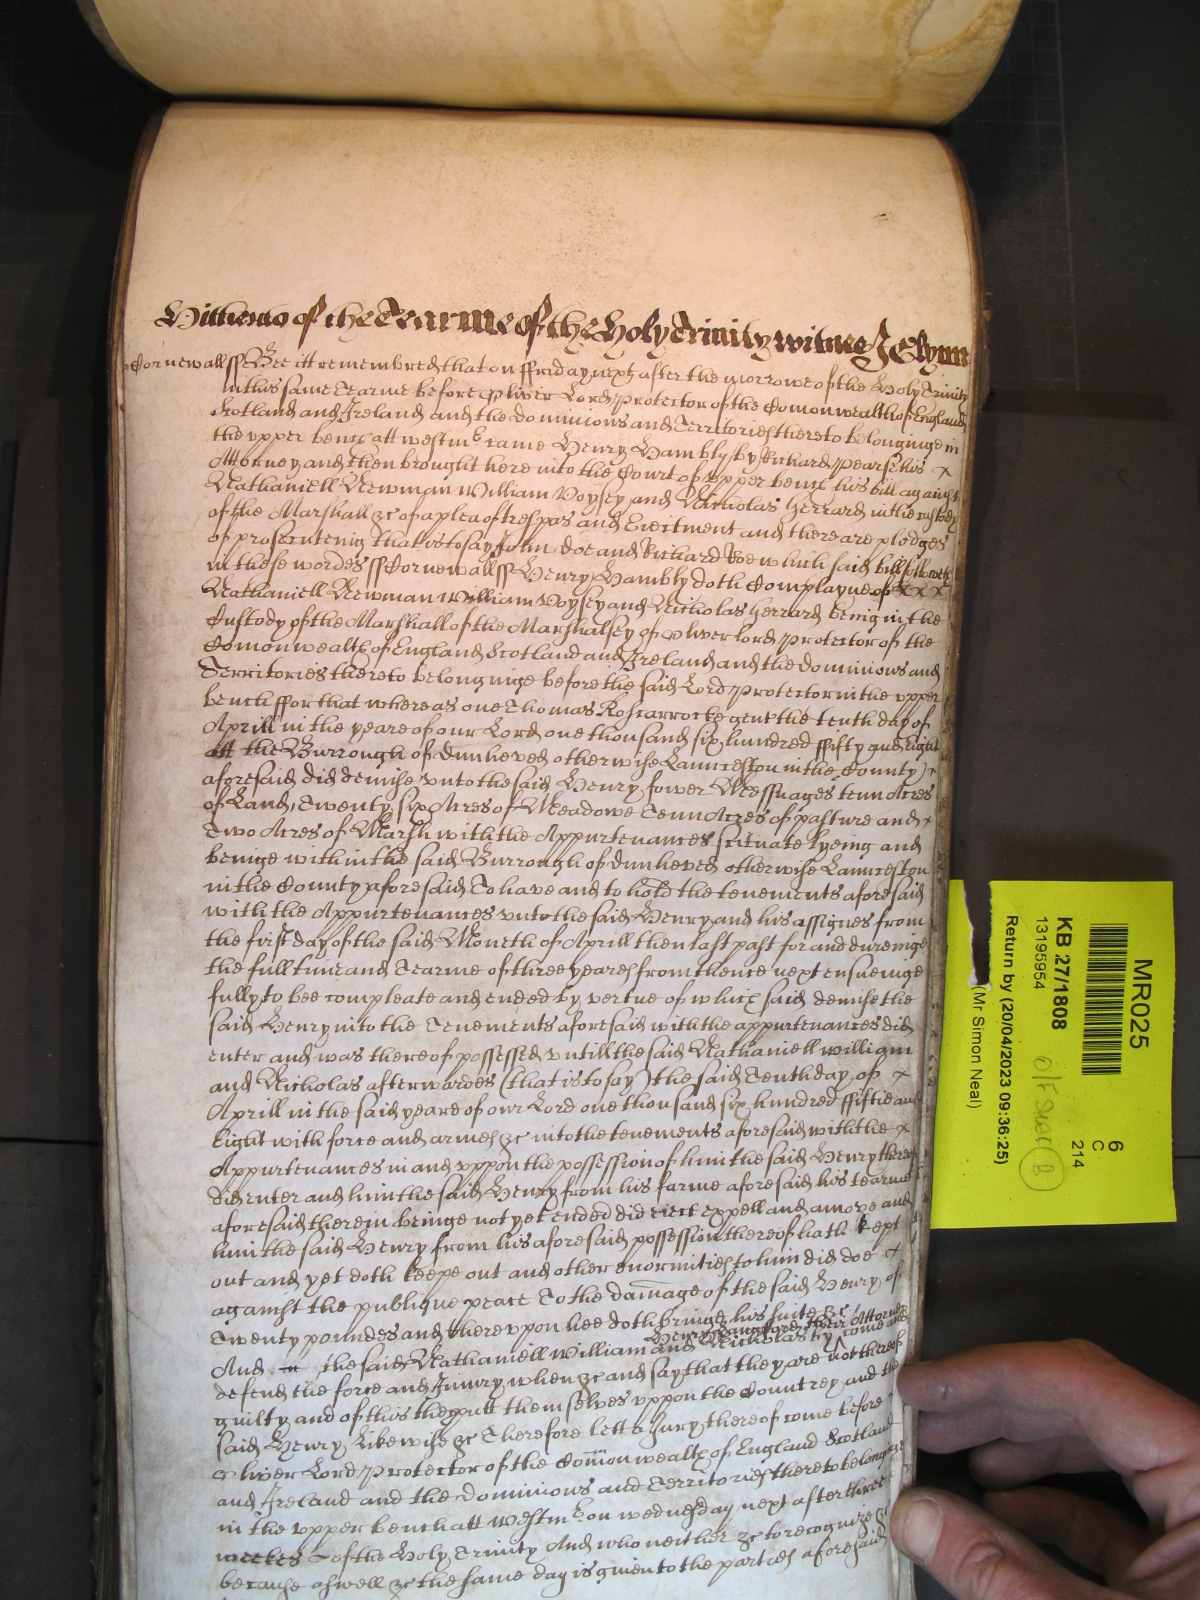 Hitherto of the Tearme of the Holy Trinity witnes J Glynn
Cornewall ss Bee itt remembred that on ffriday next after the morrowe of the Holy Trinity
in this same Tearme before Oliver Lord Protector of the Comonwealth of England
Scotland and Ireland and the dominions and Territories thereto belonginge in
the upper bench att westmr came Henry Hambly by Richard Pearse his x
Attorney and then brought here into the Court of Upper bench his bill against
Nathaniell Newman William Voysey and Nicholas Gerrard in the custody
of the Marshall &c of a plea of trespas and Eiectment and there are pledges
of prosecuteing that is to say John Doe and Richard Roe which said bill followeth
in these wordes ss Cornewall ss Henry Hambly doth Complayne of x x x
Nathaniell Newman William Voysey and Nicholas Gerrard being in the
Custody of the Marshall of the Marshalsey of Oliver lord Protector of the
Comonwealth of England Scotland and Ireland and the dominions and
Territories thereto belonginge before the said Lord Protector in the upper
bench ffor that whereas one Thomas Roscarrocke gent the tenth day of
Aprill in the yeare of our Lord one thousand six hundred ffifty and eight
att the Burrough of Dunheved otherwise Lanceston in the County
aforesaid did demise unto the said Henry fower Messuages tenn Acres
of Land, Twenty six Acres of Meadowe Tenn Acres of pasture and x
Two Acres of Marsh with the Appurtenances scituate lyeing and
beinge within the said Burrough of Dunheved otherwise Lanceston
in the County aforesaid To have and to hold the tenements aforesaid
with the Appurtenances unto the said Henry and his assignes from
the first day of the said Moneth of Aprill then last past for and dureinge
the full time and Tearme of three yeares from thence next ensueinge
fully to bee compleate and ended by vertue of which said demise the
said Henry into the Tenements aforesaid with the appurtenances did
enter and was thereof possessed untill the said Nathaniell william
and Nicholas afterwardes (that is to say) the said Tenth day of x
Aprill in the said yeare of our Lord one thousand six hundred ffiftie and
Eight with force and armes &c into the tenements aforesaid with the x
Appurtenances in and uppon the possession of him the said Henry thereof
did enter and him the said Henry from his farme aforesaid his tearme
aforesaid therein beinge not yet ended did eiect expell and amove and
him the said Henry from his aforesaid possession thereof hath kept
out and yet doth keepe out and other enormities to him did doe x
against the publique peace To the damage of the said Henry of
Twenty poundes and thereupon hee doth bringe his suite &c
Henry Langford their Attorney
And the said Nathaniell William and Nicholas by ^ come and
defend the force and Iniury when &c and say that they are not thereof
guilty and of this they putt themselves uppon the Countrey and the
said Henry Likewise &c Therefore lett a Jury thereof come before
Oliver Lord Protector of the Comonwealth of England Scotland
and Ireland and the dominions and Territories thereto belonginge
in the upper bench att westmr on wednesday next after three
weekes of the Holy Trinity And who neither &c to recognize &c
because aswell &c the same day is given to the parties aforesaid
MR025
6
C
214
KB 27/1808
13195954
Return by (20/04/2023 09:36:25)
(Mr Simon Neal)